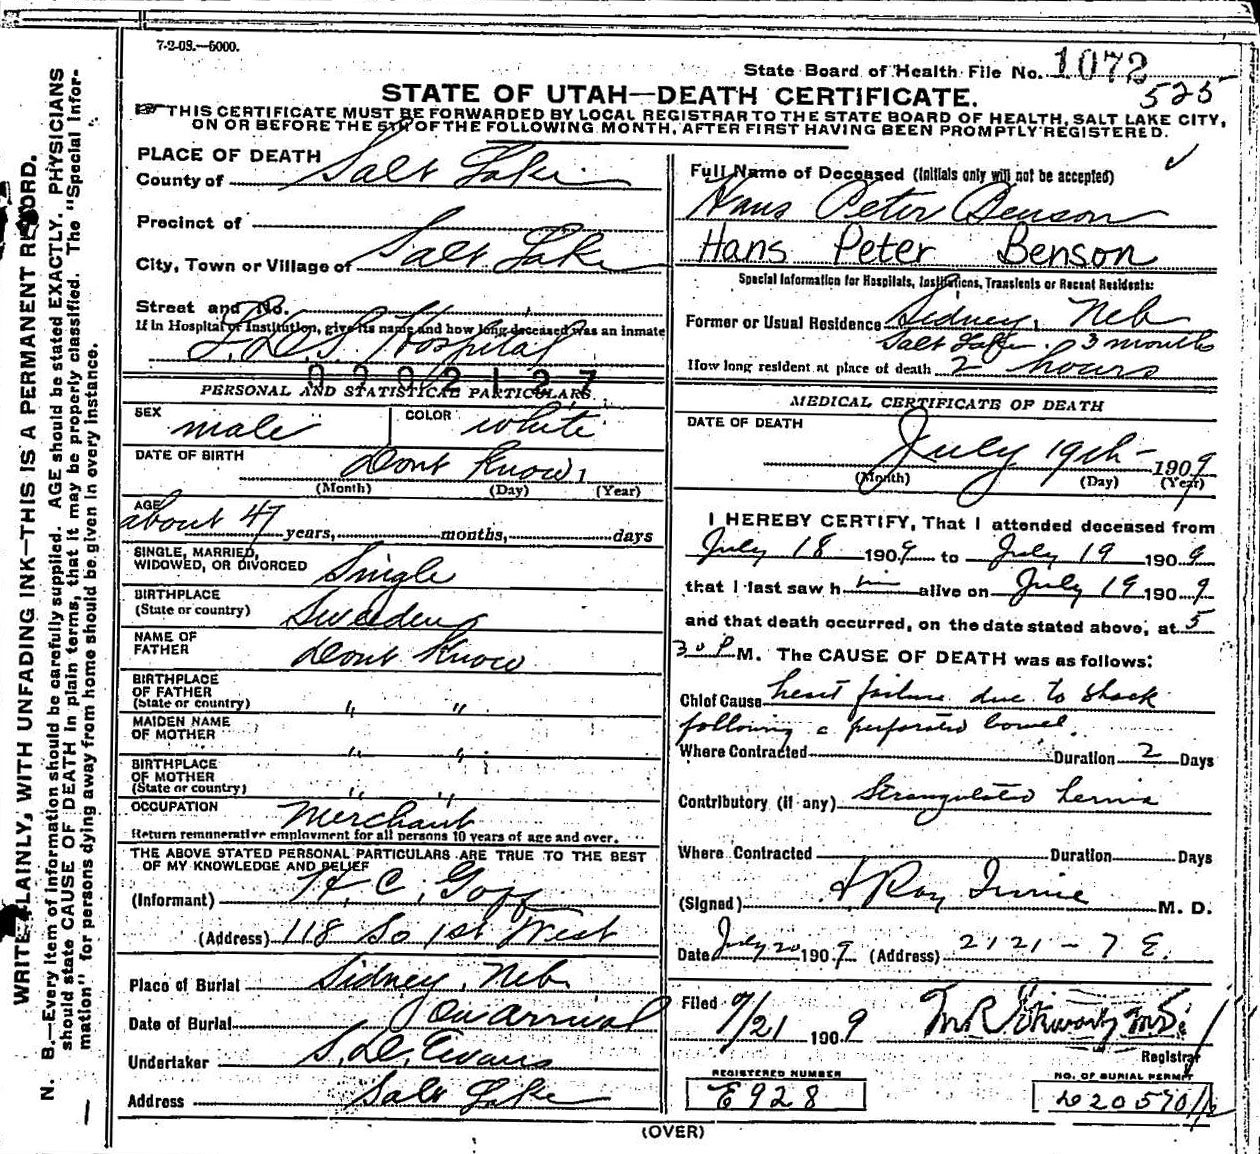 7-2-09.—5000.
State Board of Health File No. 1072
525
STATE OF UTAH—DEATH CERTIFICATE.
THIS CERTIFICATE MUST BE FORWARDED BY LOCAL REGISTRAR TO THE STATE BOARD OF HEALTH, SALT LAKE CITY,
ON OR BEFORE THE 5TH OF THE FOLLOWING MONTH, AFTER FIRST HAVING BEEN PROMPTLY REGISTERED.
WRITE PLAINLY, WITH UNFADING INK—THIS IS A PERMANENT RECORD.
N. B.—Every item of information should be carefully supplied. AGE should be stated EXACTLY. PHYSICIANS
should state CAUSE OF DEATH in plain terms, that it may be properly classified. The "Special Infor-
mation" for persons dying away from home should be given in every instance.
PLACE OF DEATH
County of Salt Lake
Precinct of
City, Town or Village of Salt Lake
Street and No.
If in Hospital or Institution, give its name and how long deceased was an inmate
L.D.S Hospital
0202127
PERSONAL AND STATISTICAL PARTICULARS
SEX male COLOR white
DATE OF BIRTH Dont Know
(Month) (Day) (Year)
AGE about 47 years, months, days
SINGLE, MARRIED,
WIDOWED, OR DIVORCED Single
BIRTHPLACE
(State or country) Sweeden
NAME OF
FATHER Dont Know
BIRTHPLACE
OF FATHER
(State or country) " "
MAIDEN NAME
OF MOTHER " "
BIRTHPLACE
OF MOTHER
(State or country) " "
OCCUPATION Merchant
Return remunerative employment for all persons 10 years of age and over.
THE ABOVE STATED PERSONAL PARTICULARS ARE TRUE TO THE BEST
OF MY KNOWLEDGE AND BELIEF
(Informant) H. C. Goff
(Address) 118 So 1st West
Place of Burial Sidney, Neb.
Date of Burial On arrival
Undertaker S. D. Evans
Address Salt Lake
Full Name of Deceased (Initials only will not be accepted)
Hans Peter Benson
Hans Peter Benson
Special Information for Hospitals, Institutions, Transients or Recent Residents:
Former or Usual Residence Sidney, Neb
Salt Lake. 3 months
How long resident at place of death 2 hours
MEDICAL CERTIFICATE OF DEATH
DATE OF DEATH
July 19th - 1909
(Month) (Day) (Year)
I HEREBY CERTIFY, That I attended deceased from
July 18 1909 to July 19 1909
that I last saw him alive on July 19 1909
and that death occurred, on the date stated above, at 5
30 P M. The CAUSE OF DEATH was as follows:
Chief Cause heart failure due to shock
following a perforated bowel.
Where Contracted Duration 2 Days
Contributory (if any) Strangulated hernia
Where Contracted Duration Days
(Signed) Ray Irvine M. D.
Date July 20 1909 (Address) 2121 - 7 E.
Filed 7/21 1909
Registrar
REGISTERED NUMBER
E928
NO. OF BURIAL PERMIT
(OVER)